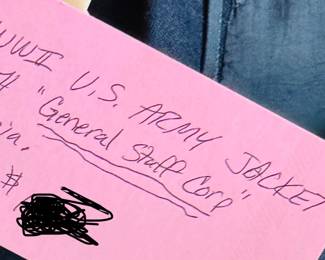 WWII U.S. ARMY JACKET
"General Staff Corp"
$